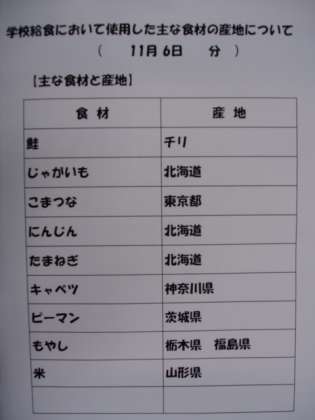 学校給食において使用した主な食材の産地について
( 11月 6日 分 )
【主な食材と産地】
食 材 産 地
鮭 チリ
じゃがいも 北海道
こまつな 東京都
にんじん 北海道
たまねぎ 北海道
キャベツ 神奈川県
ピーマン 茨城県
もやし 栃木県 福島県
米 山形県